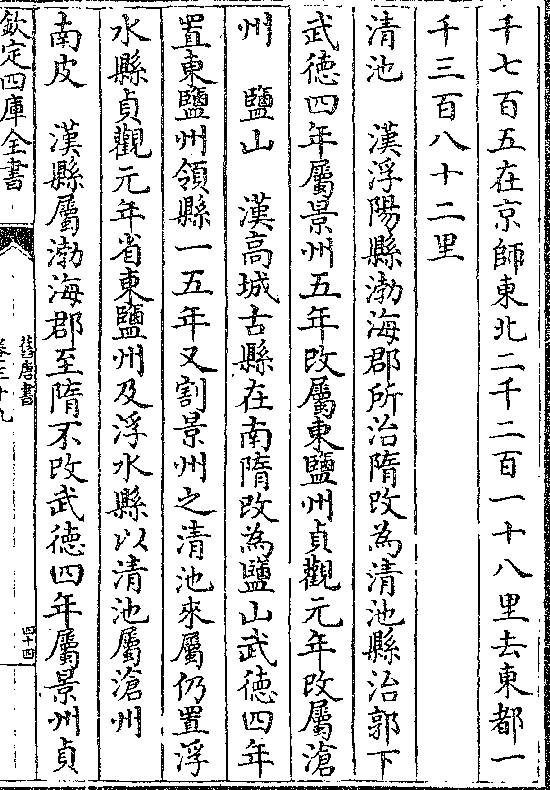 千七百五在京師東北二千二百一十八里去東都一
千三百八十二里
清池　漢浮陽縣渤海郡所治隋改為清池縣治郭下
武徳四年屬景州五年改屬東鹽州貞觀元年改屬滄
州　鹽山　漢高城古縣在南隋改為鹽山武徳四年
置東鹽州領縣一五年又割景州之清池來屬仍置浮
水縣貞觀元年省東鹽州及浮水縣以清池屬滄州
南皮　漢縣屬渤海郡至隋不改武徳四年屬景州貞
欽定四庫全書
舊唐書
卷三十九
四十四